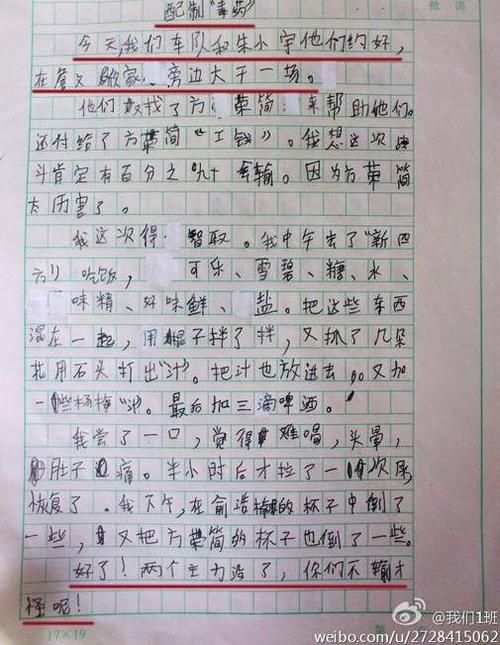 配制"毒药"
批语
今天,我们车队和朱小宇他们约好,
在詹文歇家 旁边大干一场。
他们 找了方 荣简 来帮助他们。
还付给了方荣简"工钱"。我想这次 战
斗肯定有百分之九十 会输。因为方荣简
太厉害了。
我这次得 智取。我中午去了"新四
方" 吃饭, 可乐、雪碧、糖、水、
味精、好味鲜、 盐。把这些东西
混在一起,用棍子拌了拌,又抓了几朵
花用石头打出"汁"。把汁也放进去,又加
一些杨梅"汁"。最后加三滴啤酒。
我尝了一口,觉得 难喝,头晕,
肚子 痛。半小时后才拉了一次尿,
恢复了。我下午,在俞浩 的杯子中倒了
一些, 又把方荣简的杯子也倒了一些。
好了!两个主力没了,你们不输才
怪呢!
17×19
@我们1班
weibo.com/u/2728415062